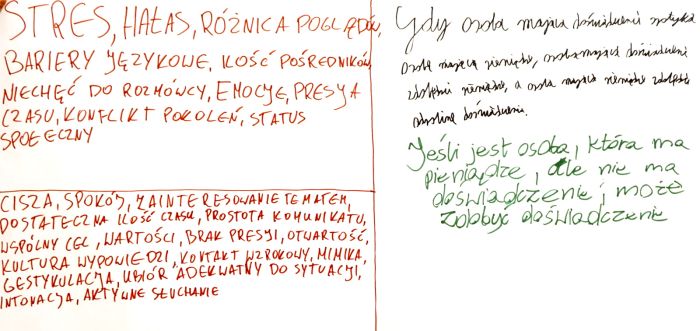 STRES, HAŁAS, RÓŻNICA POGLĄDÓW,
BARIERY JĘZYKOWE, ILOŚĆ POŚREDNIKÓW,
NIECHĘĆ DO ROZMÓWCY, EMOCJE, PRESJA
CZASU, KONFLIKT POKOLEŃ, STATUS
SPOŁECZNY
CISZA, SPOKÓJ, ZAINTERESOWANIE TEMATEM,
DOSTATECZNA ILOŚĆ CZASU, PROSTOTA KOMUNIKATU,
WSPÓLNY CEL, WARTOŚCI, BRAK PRESJI, OTWARTOŚĆ,
KULTURA WYPOWIEDZI, KONTAKT WZROKOWY, MIMIKA,
GESTYKULACJA, UBIÓR ADEKWATNY DO SYTUACJI,
INTONACJA, AKTYWNE SŁUCHANIE
Gdy osoba mająca doświadczenie spotyka
osobę mającą pieniądze, osoba mająca doświadczenie
zdobędzie pieniądze, a osoba mająca pieniądze zdobędzie
doświadczenie.
Jeśli jest osoba, która ma
pieniądze, ale nie ma
doświadczenie, może
zdobyć doświadczenie